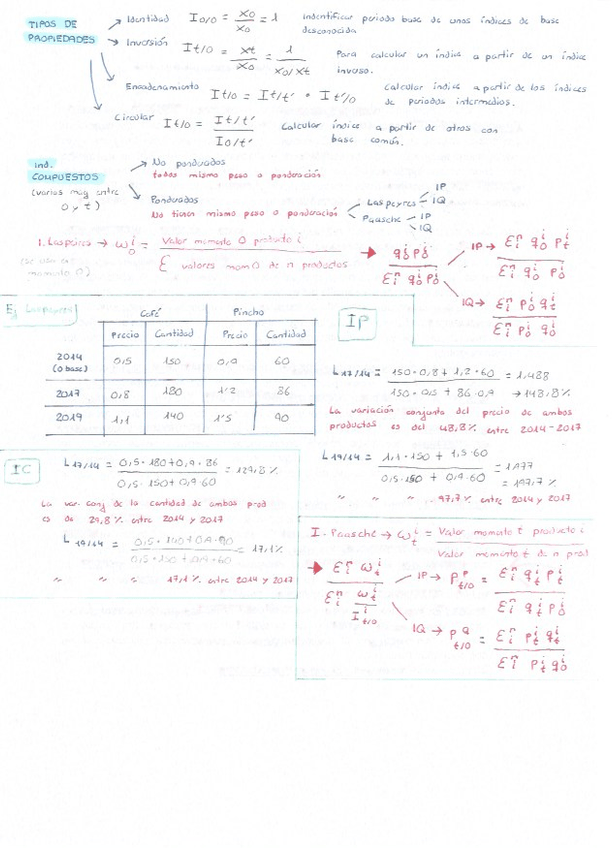 TIPOS DE PROPIEDADES
→ Identidad I0/0 = x0/x0 = 1 Indentificar periodo base de unos índices de base desconocida
→ Inversión It/0 = xt/x0 = 1/(x0/xt) Para calcular un índice a partir de un índice inverso.
Encadenamiento It/0 = It/t' · It'/0 Calcular índice a partir de los índices de periodos intermedios.
Circular It/0 = It/t' / I0/t' Calcular índice a partir de otros con base común.
ind. COMPUESTOS
(varias mag entre 0 y t)
→ No ponderados
todos mismo peso o ponderación
→ Ponderados
No tienen mismo peso o ponderación
Laspeyres IP IQ
Paasche IP IQ
1. Laspeires → ω0^i = Valor momento 0 producto i / Σ valores mom 0 de n productos
→ q0^i p0^i / Σi^n q0^i p0^i
IP → Σi^n q0^i pt^i / Σi^n q0^i p0^i
IQ → Σi^n p0^i qt^i / Σi^n p0^i q0^i
(se usa en momento 0)
Ej Laspeires
Café Pincho
Precio Cantidad Precio Cantidad
2014 (0 base) 0,5 150 0,9 60
2017 0,8 180 1'2 86
2019 1,1 140 1'5 90
IP
L 17/14 = 150·0,8 + 1,2·60 / 150·0,5 + 86·0,9 = 1,488 → 148,8%
La variación conjunta del precio de ambos productos es del 48,8% entre 2014-2017
L 19/14 = 1,1·150 + 1,5·60 / 0,5·150 + 0,9·60 = 1,977 = 197,7%
" " " 97,7% entre 2014 y 2017
IC
L 17/14 = 0,5·180+0,9·86 / 0,5·150+0,9·60 = 129,8%
La var. conj de la cantidad de ambos prod es de 29,8% entre 2014 y 2017
L 19/14 = 0,5·140+0,9·90 / 0,5·150+0,9·60 = 17,1%
" " " 17,1% entre 2014 y 2017
I. Paasche → ωt^i = Valor momento t producto i / Valor momento t de n prod
→ Σi^n ωt^i / Σi^n ωt^i / It/0^i
IP → P^P t/0 = Σi^n qt^i pt^i / Σi^n qt^i p0^i
IQ → P^Q t/0 = Σi^n pt^i qt^i / Σi^n pt^i q0^i